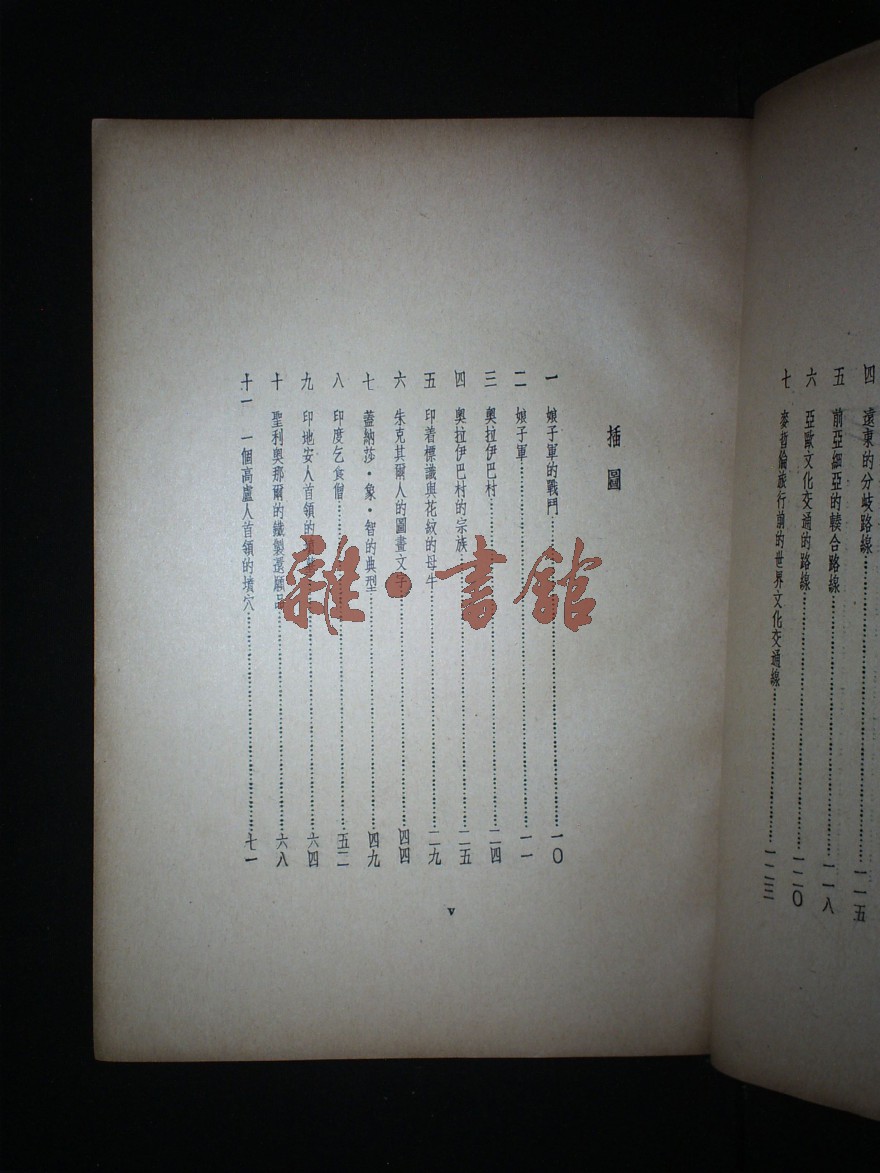 四　遠東的分歧路線……一一五
五　前亞細亞的輳合路線……一一八
六　亞歐文化交通的路線……一二〇
七　麥哲倫旅行前的世界文化交通線……一二三
插圖
一　娘子軍的戰鬥……一〇
二　娘子軍……一一
三　奧拉伊巴村……二四
四　奧拉伊巴村的宗族……二五
五　印着標識與花紋的母牛……二九
六　朱克其爾人的圖畫文字……四四
七　蓋納莎·象·智的典型……四九
八　印度乞食僧……五二
九　印地安人首領的……六四
十　聖利奧那爾的鐵製還願品……六八
十一　一個高盧人首領的墳穴……七一
v
雜·書館